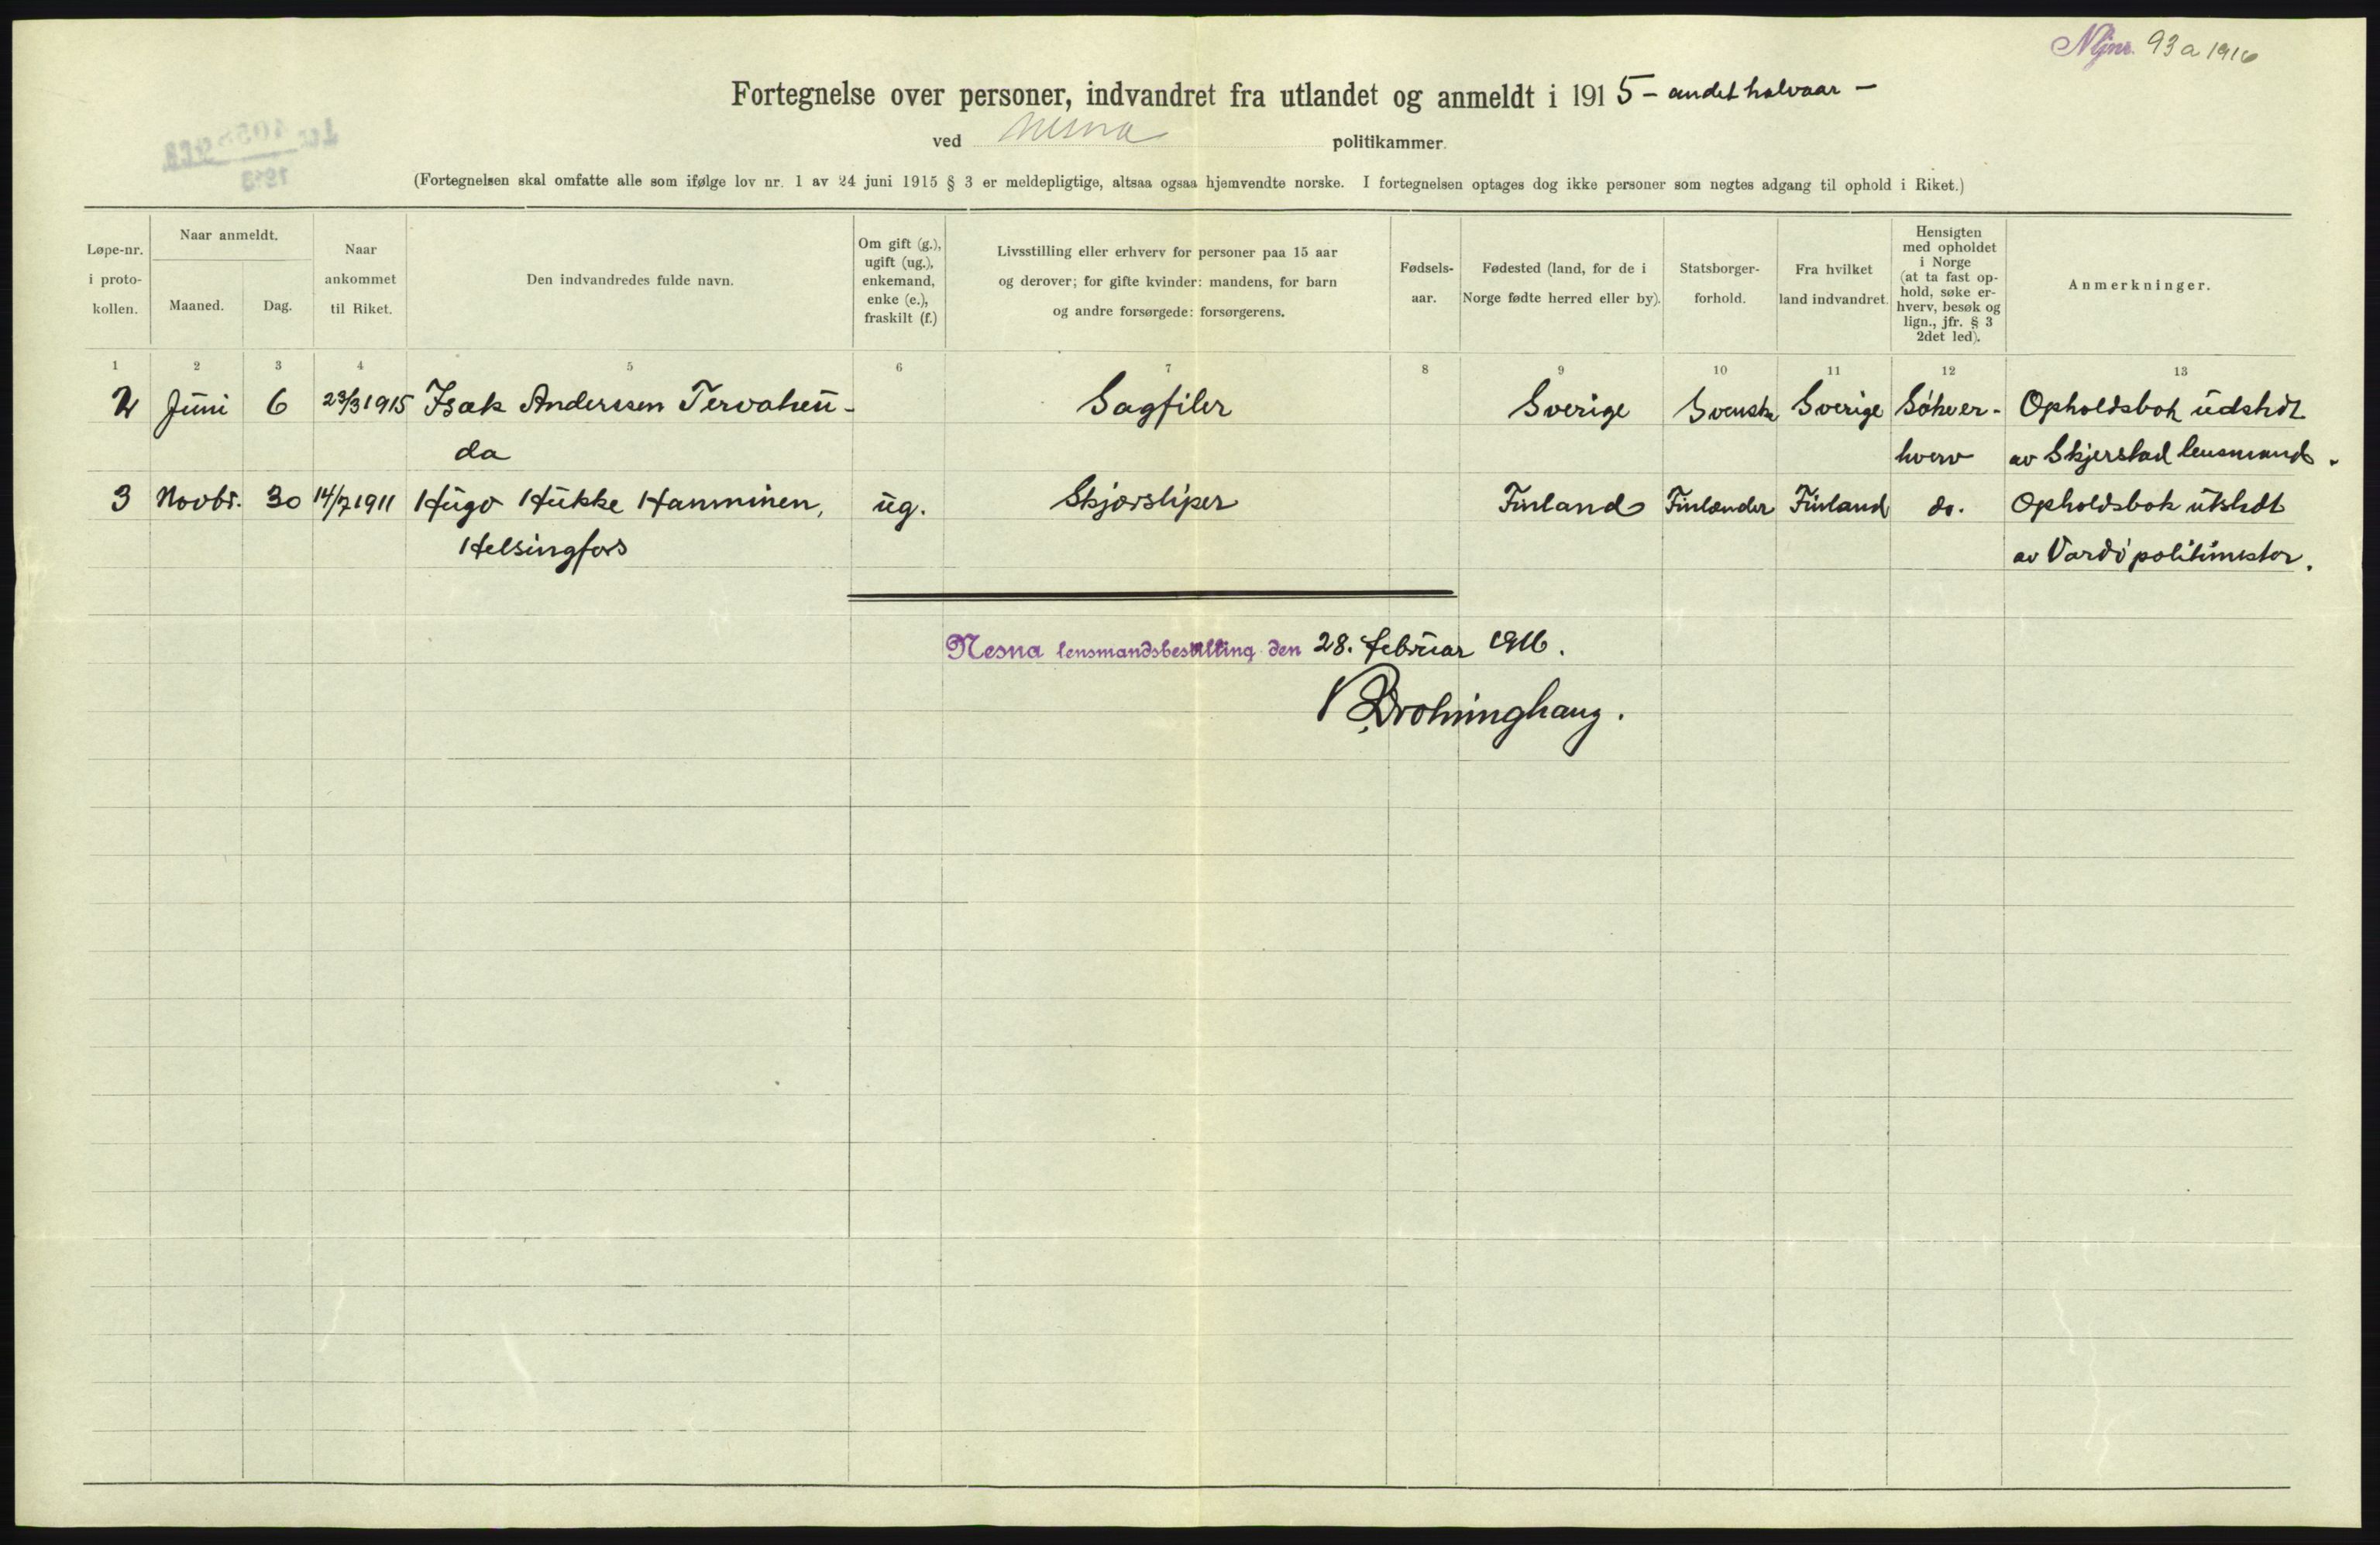 Njnr. 93 a 1916
Fortegnelse over personer, indvandret fra utlandet og anmeldt i 1915 – andet halvaar –
ved Nesna politikammer.
(Fortegnelsen skal omfatte alle som ifølge lov nr. 1 av 24 juni 1915 § 3 er meldepligtige, altsaa ogsaa hjemvendte norske. I fortegnelsen optages dog ikke personer som negtes adgang til ophold i Riket.)
Løpe-nr.
i proto-
kollen.
Naar anmeldt.
Maaned.
Dag.
Naar
ankommet
til Riket.
Den indvandredes fulde navn.
Om gift (g.),
ugift (ug.),
enkemand,
enke (e.),
fraskilt (f.)
Livsstilling eller erhverv for personer paa 15 aar
og derover; for gifte kvinder: mandens, for barn
og andre forsørgede: forsørgerens.
Fødsels-
aar.
Fødested (land, for de i
Norge fødte herred eller by).
Statsborger-
forhold.
Fra hvilket
land indvandret.
Hensigten
med opholdet
i Norge
(at ta fast op-
hold, søke er-
hverv, besøk og
lign., jfr. § 3
2det led).
Anmerkninger.
1 2 3 4 5 6 7 8 9 10 11 12 13
2 Juni 6 23/3 1915 Isak Anderssen Tervaheu- Sagfiler Sverige Svensk Sverige Søke er- Opholdsbok udstedt
da hverv av Skjerstad lensmand.
3 Novbr. 30 14/7 1911 Hugo Hukke Hanminen, ug. Skjærsliper Finland Finlænder Finland do. Opholdsbok utstedt
Helsingfors av Vardø politimester.
Nesna lensmandsbestilling den 28. februar 1916.